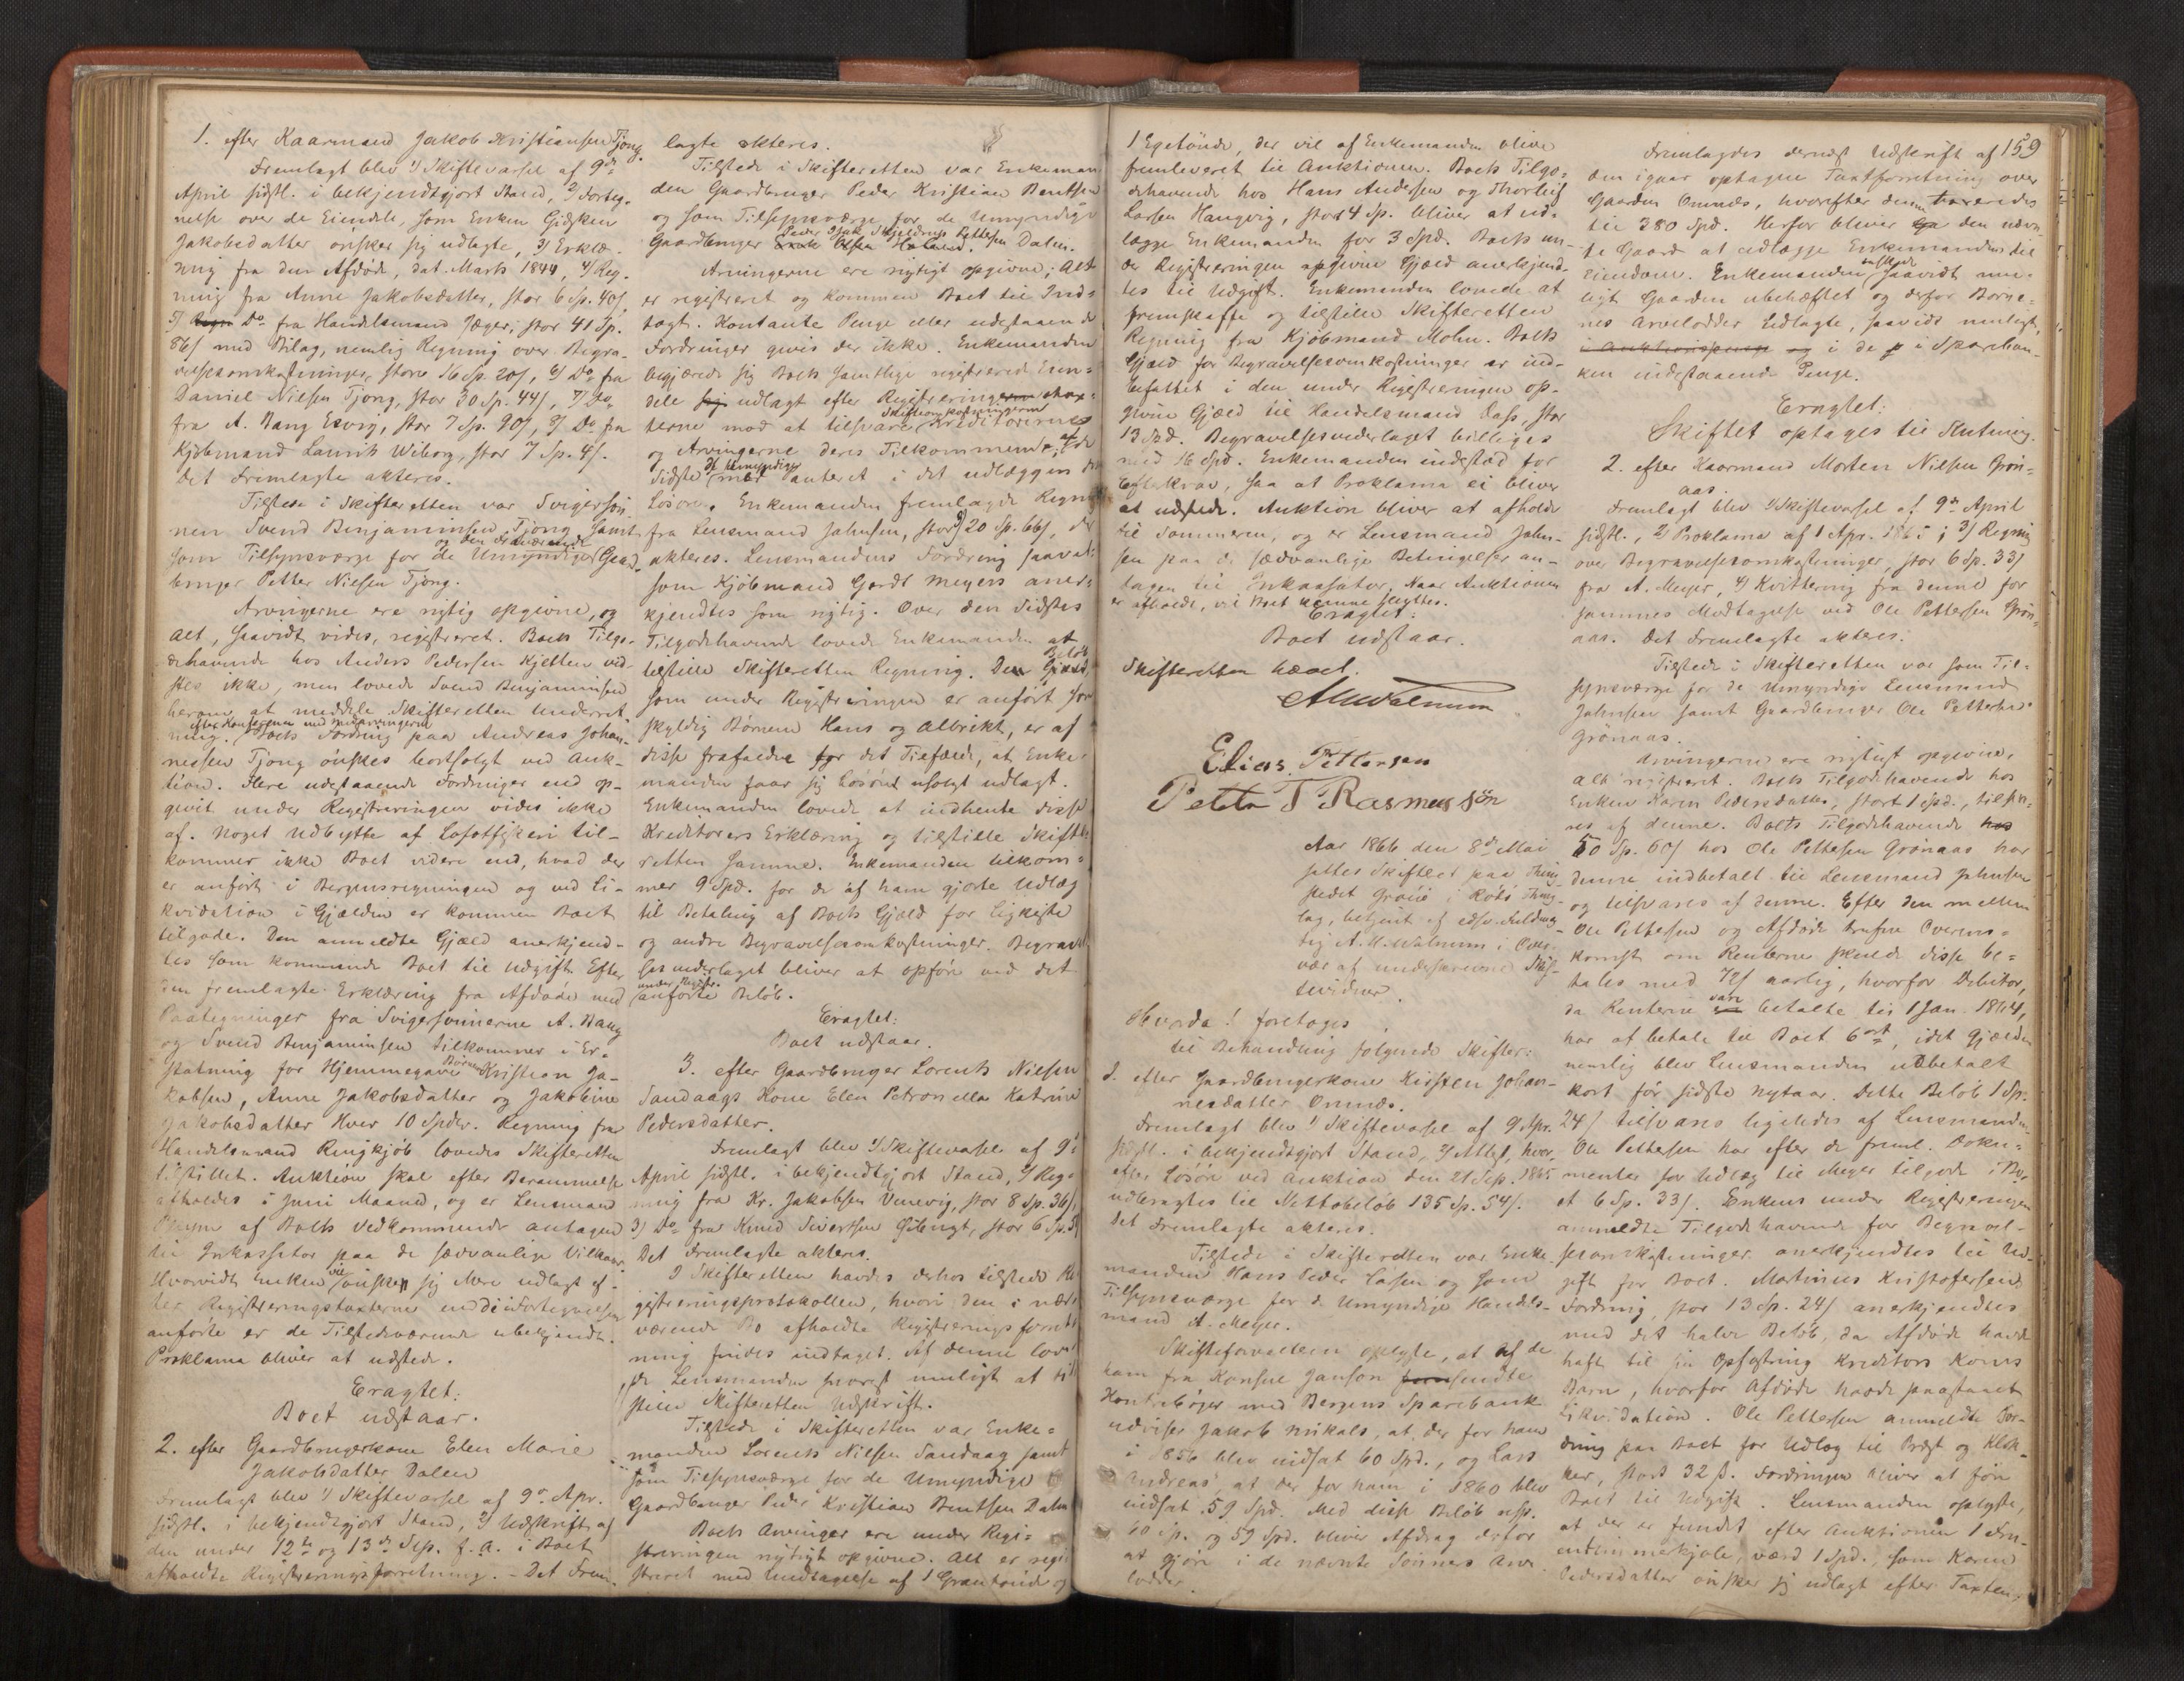 1. efter Kaarmand Jakob Kristiansen Tjong.
Fremlagt blev 1/ Skiftevarsel af 9de
April sidstl. i bekjendtgjort Stand, 2/ Forteg-
nelse over de Eiendele, som Enken Gidsken
Jakobsdatter ønsker sig udlagte, 3/ Erklæ-
ring fra den Afdøde, dat. Marts 1844, 4/ Reg-
ning fra Anne Jakobsdatter, stor 6 Sp. 40/,
5/ Do fra Handelsmand Jæger, stor 41 Sp.
86/ med Bilag, nemlig Regning over Begra-
velsesomkostninger, store 16 Sp. 20/, 6/ Do fra
Daniel Nilsen Tjong, stor 30 Sp. 44/, 7/ Do
fra A. Bang Esvig, stor 7 Sp. 90/, 8/ Do fra
Kjøbmand Laurits Wiborg, stor 7 Sp. 4/.
Det Fremlagte akteres.
Tilstede i Skifteretten var Svigersøn-
nen Svend Benjaminsen Tjong samt
og den fraværende
som Tilsynsværge for de Umyndige Gaard-
bruger Petter Nielsen Tjong.
Arvingerne ere rigtig opgivne, og
Alt, saavidt vides, registreret. Boets Tilgo-
dehavende hos Anders Pedersen Kjelten vid-
stes ikke, men lovede Svend Benjaminsen
herom at meddele Skifteretten Underret-
efter Konferens med Medarvingerne
ning. Boets Fordring paa Andreas Johan-
nessen Tjong ønskes bortsolgt ved Auk-
tion. Flere udestaaende Fordringer end op-
givet under Registreringen vides ikke
af. Noget Udbytte af Lofotfiskeri til-
kommer ikke Boet videre end, hvad der
er anført i Bergensregningen og ved Li-
kvidation i Gjælden er kommen Boet
tilgode. Den anmeldte Gjæld anerkjend-
tes som kommende Boet til Udgift. Efter
den fremlagte Erklæring fra Afdøde med
Paategninger fra Svigersønnerne A. Bang
og Svend Benjaminsen tilkommer i Er-
statning for Hjemmegave Børnene Kristian Ja-
kobsen, Anne Jakobsdatter og Jakobine
Jakobsdatter Hver 10 Spdlr. Regning fra
Handelsmand Ringkjøb lovedes Skifteretten
tilstillet. Auktion skal efter Berammelse
afholdes i Juni Maaned, og er Lensmand
af Boets Vedkommende antagen
til Inkassator paa de sædvanlige Vilkaar.
Hvorvidt Enken vil ønske sig Mere udlagt ef-
ter Registreringstaxterne end i Fortegnelsen
anførte er de Tilstedeværende ubekjendt.
Proklama bliver at udstede.
Eragtet:
Boet udstaar.
2. efter Gaardbrugerkone Elen Marie
Jakobsdatter Dalen
Fremlagt blev 1/ Skiftevarsel af 9de Apr.
sidstl. i bekjendtgjort Stand, 2/ Udskrift af
den under 12te og 13de Sep. f. a. i Boet
afholdte Registreringsforretning. - Det Frem-
lagte akteres.
Tilstede i Skifteretten var Enkeman-
den Gaardbruger Peder Kristian Bentsen
og som Tilsynsværge for de Umyndige
Gaardbruger Peder Isak Pettersen Dalen.
Arvingerne ere rigtigt opgivne; Alt
er registreret og kommen Boet til Ind-
tægt. Kontante Penge eller udestaaende
Fordringer gives der ikke. Enkemanden
begjærede sig Boets samtlige registrerede Eien-
dele udlagt efter Registreringstax-
Skifteomkostningerne
terne mod at tilsvare Kreditorerne
og Arvingerne deres Tilkommende, af de
Sidste de Umyndige mod Panteret i det udlæggende
Løsøre. Enkemanden fremlagde Regning
fra Lensmand Jahnsen, stor 20 Sp. 66/, der
akteres. Lensmandens Fordring saavel
som Kjøbmand Gerdt Meyers aner-
kjendtes som rigtig. Over den Sidstes
Tilgodehavende lovede Enkemanden at
tilstille Skifteretten Regning. Den Gjæld,
som under Registreringen er anført som
skyldig Børnene Hans og Albrikt, er af
disse frafaldne for det Tilfælde, at Enke-
manden faar sig Løsøret usolgt udlagt.
Enkemanden lovede at indhente disse
Kreditorers Erklæring og tilstille Skifte-
retten samme. Enkemanden tilkom-
mer 9 Spd. for de af ham gjorte Udlæg
til Betaling af Boets Gjæld for Ligkiste
og andre Begravelsesomkostninger. Begravel-
sesvederlaget bliver at opføre med det
under Registr.
anførte Beløb.
Eragtet:
Boet udstaar.
3. efter Gaardbruger Lorents Nielsen
Sandaags Kone Elen Petronella Katrine
Pedersdatter.
Fremlagt blev 1/ Skiftevarsel af 9de
April sidstl. i bekjendtgjort Stand, 2/ Reg-
ning fra Kr. Jakobsen Unevig, stor 8 Sp. 36/,
3/ Do fra Knud Sivertsen, stor 6 Sp.
Det Fremlagte akteres.
I Skifteretten havdes derhos tilstede Re-
gistreringsprotokollen, hvori den i nær-
værende Bo afholdte Registreringsforret-
ning findes indtaget. Af denne love-
de Lensmanden snarest muligt at til-
stille Skifteretten Udskrift.
Tilstede i Skifteretten var Enke-
manden Lorents Nilsen Sandaag samt
som Tilsynsværge for de Umyndige
Gaardbruger Peder Kristian Bentsen Dalen
Boets Arvinger ere under Regi-
streringen rigtigt opgivne. Alt er regi-
streret med Undtagelse af 1 Grantønde og
1 Egetønde, der vil af Enkemanden blive
fremleveret til Auktionen. Boets Tilgo-
dehavende hos Hans Andersen og Thorleif
Larsen Hangvig, stort 4 Sp. bliver at ud-
lægge Enkemanden for 3 Spd. Boets un-
der Registreringen opgivne Gjæld anerkjend-
tes til Udgift. Enkemanden lovede at
fremskaffe og tilstille Skifteretten
Regning fra Kjøbmand Mohn. Boets
Gjæld for Begravelsesomkostninger er ind-
befattet i den under Registreringen op-
givne Gjæld til Handelsmand Dass, stor
13 Spd. Begravelsesvederlaget billiges
med 16 Spd. Enkemanden indestod for
Eftekrav, saa at Proklama ei bliver
at udstede. Auktion bliver at afholde
til Sommeren, og er Lensmand Jahn-
sen paa de sædvanlige Betingelser an-
tagen til Inkassator. Naar Auktionen
er afholdt, vil Boet kunne sluttes.
Eragtet:
Boet udstaar.
Skifteretten hævet.
AMWalnum
Elias Pettersen
Petter T Rasmussøn
Aar 1866 den 8de Mai
sattes Skifteret paa Thing-
stedet Grøn i Rødø Thing-
lag, betjent af edsv. Fuldmæg-
tig A. M. Walnum i Over-
vær af underskrevne Skif-
tevidner.
Hvorda! foretoges
til Behandling følgende Skifter:
1. efter Gaardbrugerkone Kirsten Johan-
nesdatter Omnæs.
Fremlagt blev 1/ Skiftevarsel af 9 Apr.
sidstl. i bekjendtgjort Stand, 2/ Attest, hvor-
efter Løsøre ved Auktion den 21 Sep. 1865
udbragtes til Nettobeløb 135 Sp. 54/.
Det Fremlagte akteres.
Tilstede i Skifteretten var Enke-
manden Hans Peder Olsen og som
Tilsynsværge for de Umyndige Handels-
mand A. Meyer.
Skifteforvalteren oplyste, at af de
ham fra Konsul Janson sendte
Kontrabøger med Bergens Sparebank
udviser Jakob Mikals, at der for ham
i 1856 blev indsat 60 Spd., og Lars
Andreas', at der for ham i 1860 blev
indsat 59 Spd. Med disse Beløb resp.
60 Sp. og 59 Spd. bliver Afdrag derfor
at gjøre i de nævnte Sønners Arve-
lodder.
159
Fremlagdes dernæst Udskrift af
den igaar optagne Taxtforretning over
Gaarden Omnæs, hvorefter denne taxeredes
til 380 Spd. Herfor bliver den nævn-
te Gaard at udlægge Enkemanden til
Eiendom. Enkemanden ønskede saavidt mu-
ligt Gaarden ubehæftet og derfor Børne-
nes Arvelodder udlagte, saavidt muligt,
i Auktionspenge og i de i Spareban-
ken indestaaende Penge.
Eragtet:
Skiftet optages til Slutning.
2. efter Kaarmand Morten Nilsen Grøn-
aas.
Fremlagt blev 1/ Skiftevarsel af 9de April
sidstl., 2/ Proklama af 1 Apr. 1865; 3/ Regning
over Begravelsesomkostninger, stor 6 Sp. 33/
fra A. Meyer, 4/ Kvittering fra denne for
sammes Modtagelse ved Ole Pettersen Grøn-
aas. Det Fremlagte akteres.
Tilstede i Skifteretten var som Til-
synsværge for de Umyndige Lensmand
Jahnsen samt Gaardbruger Ole Pettersen
Grønaas.
Arvingerne ere rigtigt opgivne,
Alt registreret. Boets Tilgodehavende hos
Enken Karen Pedersdatter, stort 1 Spd., tilsva-
res af denne. Boets Tilgodehavende
50 Sp. 60/ hos Ole Pettersen Grønaas har
denne indbetalt til Lensmand Jahnsen
og tilsvares af denne. Efter den mellem
Ole Pettersen og Afdøde trufne Overens-
komst om Renterne skulde disse be-
tales med 72/ aarlig, hvorfor Debitor,
da Renterne vare betalte til 1 Jan. 1864,
har at betale til Boet 6 ort, idet Gjælden
nemlig blev Lensmanden udbetalt
kort før sidste Nytaar. Dette Beløb 1 Sp.
24/ tilsvares ligeledes af Lensmanden.
Ole Pettersen har efter de freml. Doku-
menter for Udlæg til Meyer tilgode i Bo-
et 6 Sp. 33/. Enkens under Registreringen
anmeldte Tilgodehavende for Begravel-
sesomkostninger anerkjendtes til Ud-
gift for Boet. Martinus Kristofersens
Fordring, stor 13 Sp. 24/ anerkjendtes
med det halve Beløb, da Afdøde havde
haft til sin Opfostring Kreditors Kones
Barn, hvorfor Afdøde havde paastaaet
Likvidation. Ole Pettersen anmeldte For-
dring paa Boet for Udlæg til Præst og Klok-
ker, stort 32 ß. Fordringen bliver at føre
Boet til Udgift. Lensmanden oplyste,
at der er fundet efter Auktionen 1 Fru-
entimmerkjole, værd 1 Spd., som Karen
Pedersdatter ønsker sig udlagt efter Taxten,